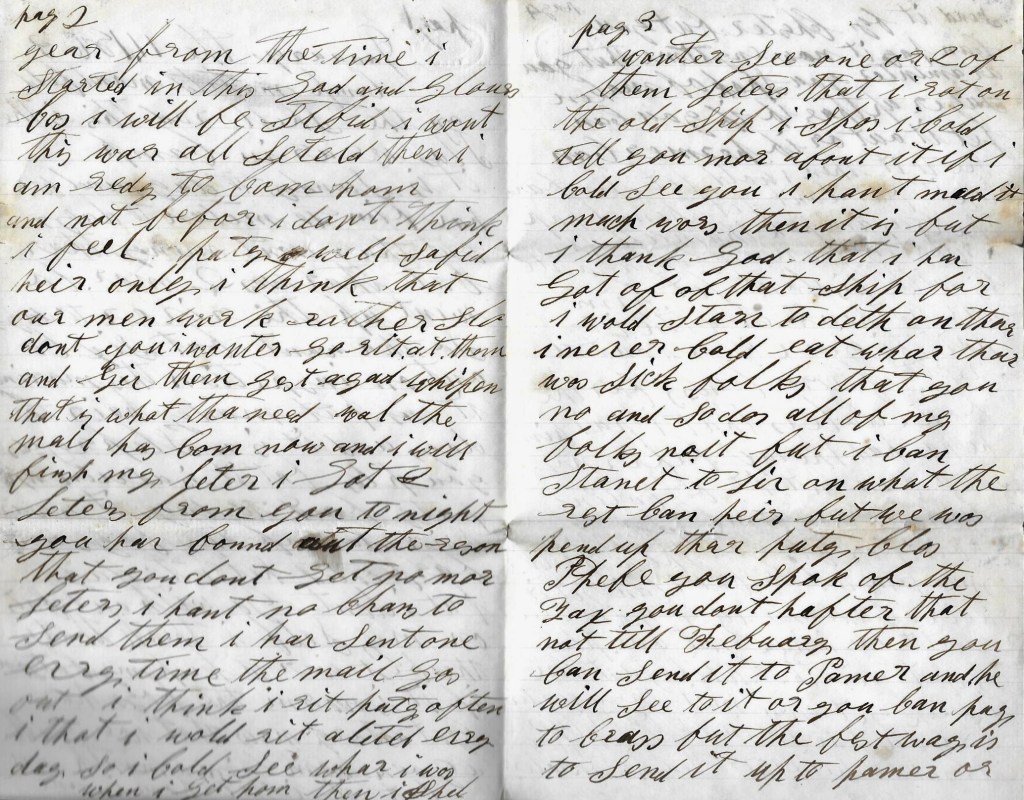 pag 2
year from the time i
Started in this God and Glours
bos i will be Stisfid i want
this war all Seteld then i
am redy to Com hom
and not befor i dont think
i feel puty well Safid
heir only i think that
our men work rather Slo
dont you wonter go at at them
and giv them gest a gad whipen
that is what tha need wal the
mail has Com now and i will
finsh my leter i Got 2
leters from you to night
you hav found out the reson
that you dont Get no mor
leters i hant no Chans to
Send them i hav Sent one
evry time the mail Gos
out i think i rit puty often
i that i wold rit a litel evry
day So i Cold See whar i was
when i get hom then i Shel
pag 3
wonter See one or 2 of
them leters that i rot on
the old Ship i Spos i Cold
tell you mor about it if i
Cold See you i hant mad it
much wors then it is but
i thank God that i hav
Got of of that Ship for
i wold Starv to deth on thar
i never Cold eat whar thar
was Sick folks that you
no and So dos all of my
folks no it but i Can
Stanet to liv on what the
rest Can heir but we was
pend up thar puty Clos
Phebe you Spok of the
Tax you dont hafter that
not till Febuary then you
Can Send it to Pamer and he
will See to it or you Can pay
to Crass but the best way is
to Send it up to pamer or